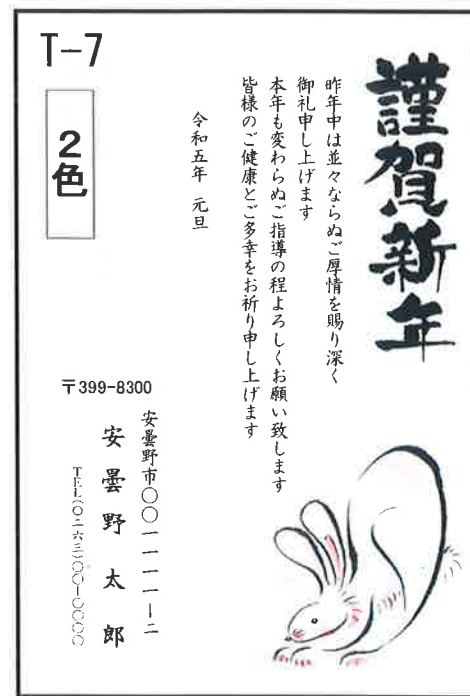 T-7
2色
謹賀新年
昨年中は並々ならぬご厚情を賜り深く
御礼申し上げます
本年も変わらぬご指導の程よろしくお願い致します
皆様のご健康とご多幸をお祈り申し上げます
令和五年 元旦
〒399-8300
安曇野市〇〇一一一一ー二
安曇野太郎
TEL(〇二六三)〇〇ー〇〇〇〇